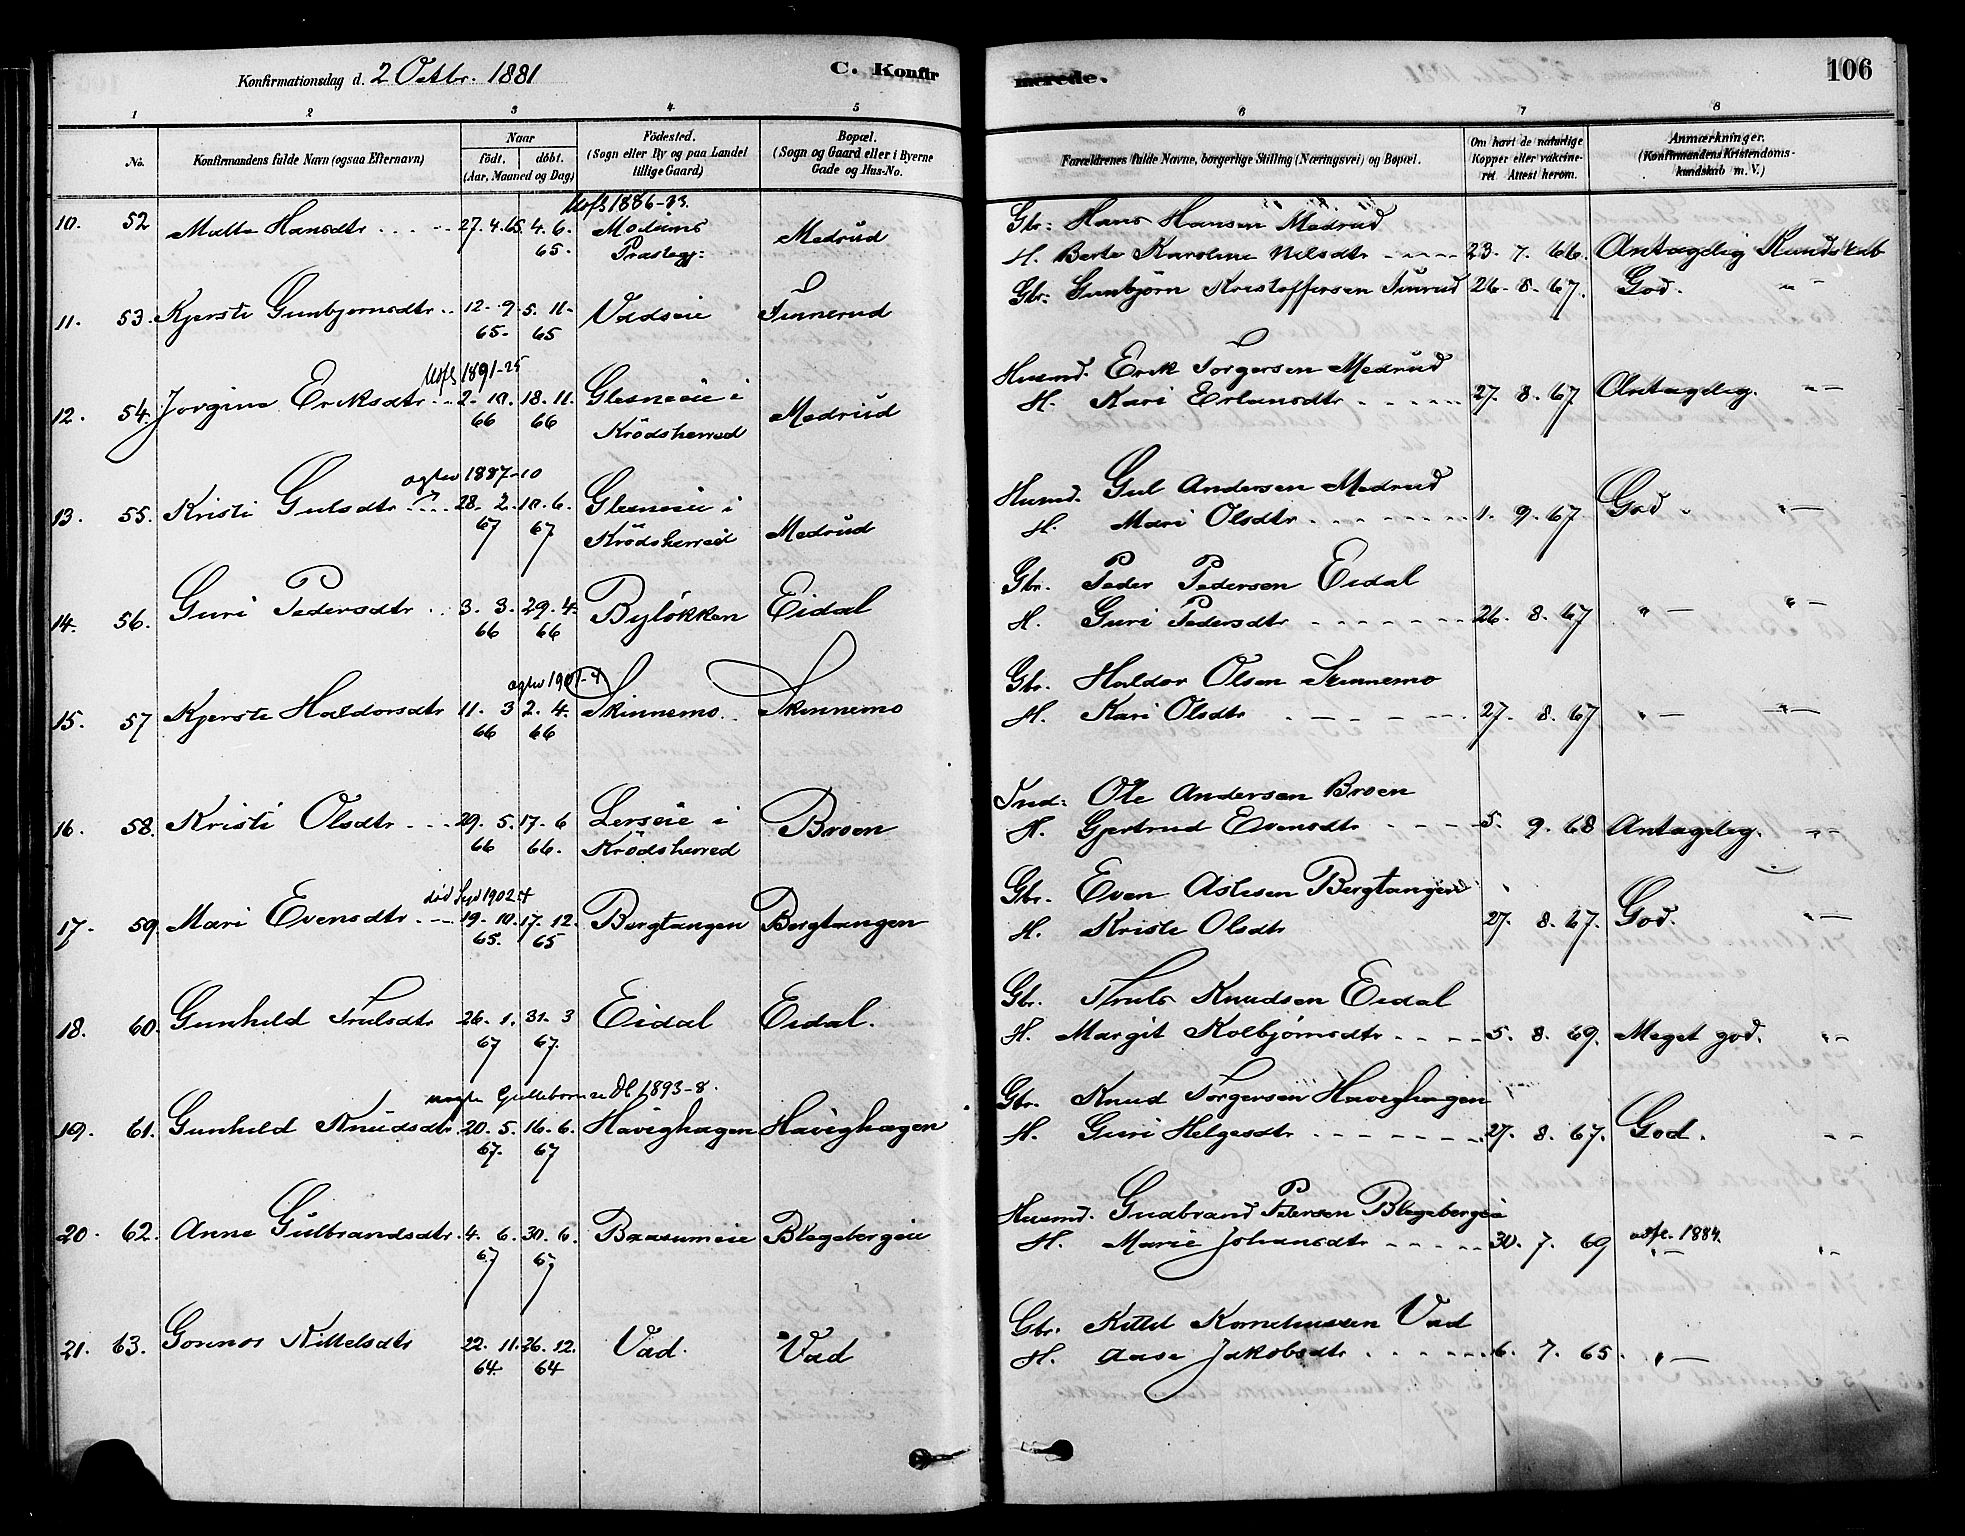 Konfirmationsdag d. 2 Octbr. 1881
C. Konfir
merede.
106
1 2 3 4 5 6 7 8
No.
Konfirmandens fulde Navn (ogsaa Efternavn)
Naar
födt. döbt.
(Aar, Maaned og Dag)
Födested.
(Sogn eller By og paa Landet
tillige Gaard)
Bopæl.
(Sogn og Gaard eller i Byerne
Gade og Hus-No.
Forældrenes fulde Navne, borgerlige Stilling (Næringsvei) og Bopæl.
Om havt de naturlige
Kopper eller vakcine-
ret Attest herom.
Anmærkninger.
(Konfirmandens Kristendoms-
kundskab m. V.)
Uofs 1886-23.
10. 52 Malte Hansdtr 27. 4. 65 4. 6. 65. Modums Præstegj: Medrud
Gbr: Hans Hansen Medrud
H. Berte Karoline Nilsdtr 23. 7. 66. Antagelig Kundskab
11. 53. Kjersti Gunbjornsdtr 12. 9. 65. 5. 11. 65 Vadseie Tinnerud
Gbr: Gunbjörn Kristoffersen Tinrud 26. 8. 67. God. " -
Uofs 1891-25
12. 54. Jorgine Eriksdtr 2. 10. 66 18. 11. 66 Glesneeie i Krödsherred Medrud
Husmd. Erik Torgersen Medrud
H. Kari Erlansdtr 27. 8. 67 Antagelig. " -
agtev 1887-10
13. 55. Kristi Gulsdtr 28. 2. 67 10. 6. 67 Glesneeie i Krödsherred Medrud
Husmd. Gul Andersen Medrud
H. Mari Olsdtr 1. 9. 67 God " -
14. 56. Guri Pedersdtr 3. 3. 66 29. 4. 66 Bylökken Eidal
Gbr. Peder Pedersen Eidal
H. Guri Pedersdtr 26. 8. 67 " - " -
agtev 1901-4
15. 57 Kjersti Haldorsdtr 11. 3 66 2. 4. 66 Skinnemo Skinnemo
Gbr. Haldor Olsen Skinnemo
H. Kari Olsdtr 27. 8. 67 " - " -
16. 58. Kristi Olsdtr 29. 5. 66 17. 6 66. Lerseie i Krödsherred Broen
Ind: Ole Andersen Broen
H. Gjertrud Evensdtr 5. 9. 68 Antagelig. " -
död Sep 1902
17. 59. Mari Evensdtr 19. 10. 65. 17. 12. 65 Bergtangen Bergtangen
Gbr. Even Aslesen Bergtangen
H. Kristi Olsdtr 27. 8. 67. God. " -
18. 60. Gunhild Trulsdtr 26. 1. 67 31. 3 67. Eidal Eidal.
Gbr. Truls Knudsen Eidal
H. Margit Kolbjörnsdtr 5. 8. 69. Meget god. " -
1893-8.
19. 61. Gunhild Knudsdtr 20. 5. 67. 16. 6. 67 Havighagen Havighagen
Gbr. Knud Torgersen Havighagen
H. Guri Helgesdtr 27. 8. 67. God. - -
20. 62. Anne Gulbrandsdtr. 4. 6. 67 30. 6. 67 Braasumeie Blegebergeie
Husmd. Gudbrand Petersen Blegebergeie
H. Marie Johansdtr 30. 7. 69 1884. " - " -
21. 63. Gonnor Kittelsdtr 22. 11. 64. 26. 12. 64 Vad. Vad
Gbr. Kittel Korneliussen Vad
H. Aase Jakobsdtr 6. 7. 65. " -